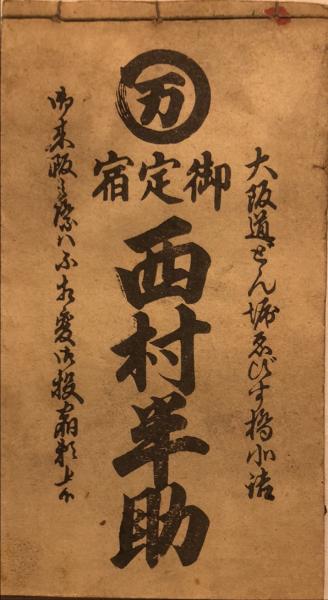 大阪道とん堀ゑびす橋北詰
万
御定宿
西村半助
御来阪之際ハ不相変御投宿願上候